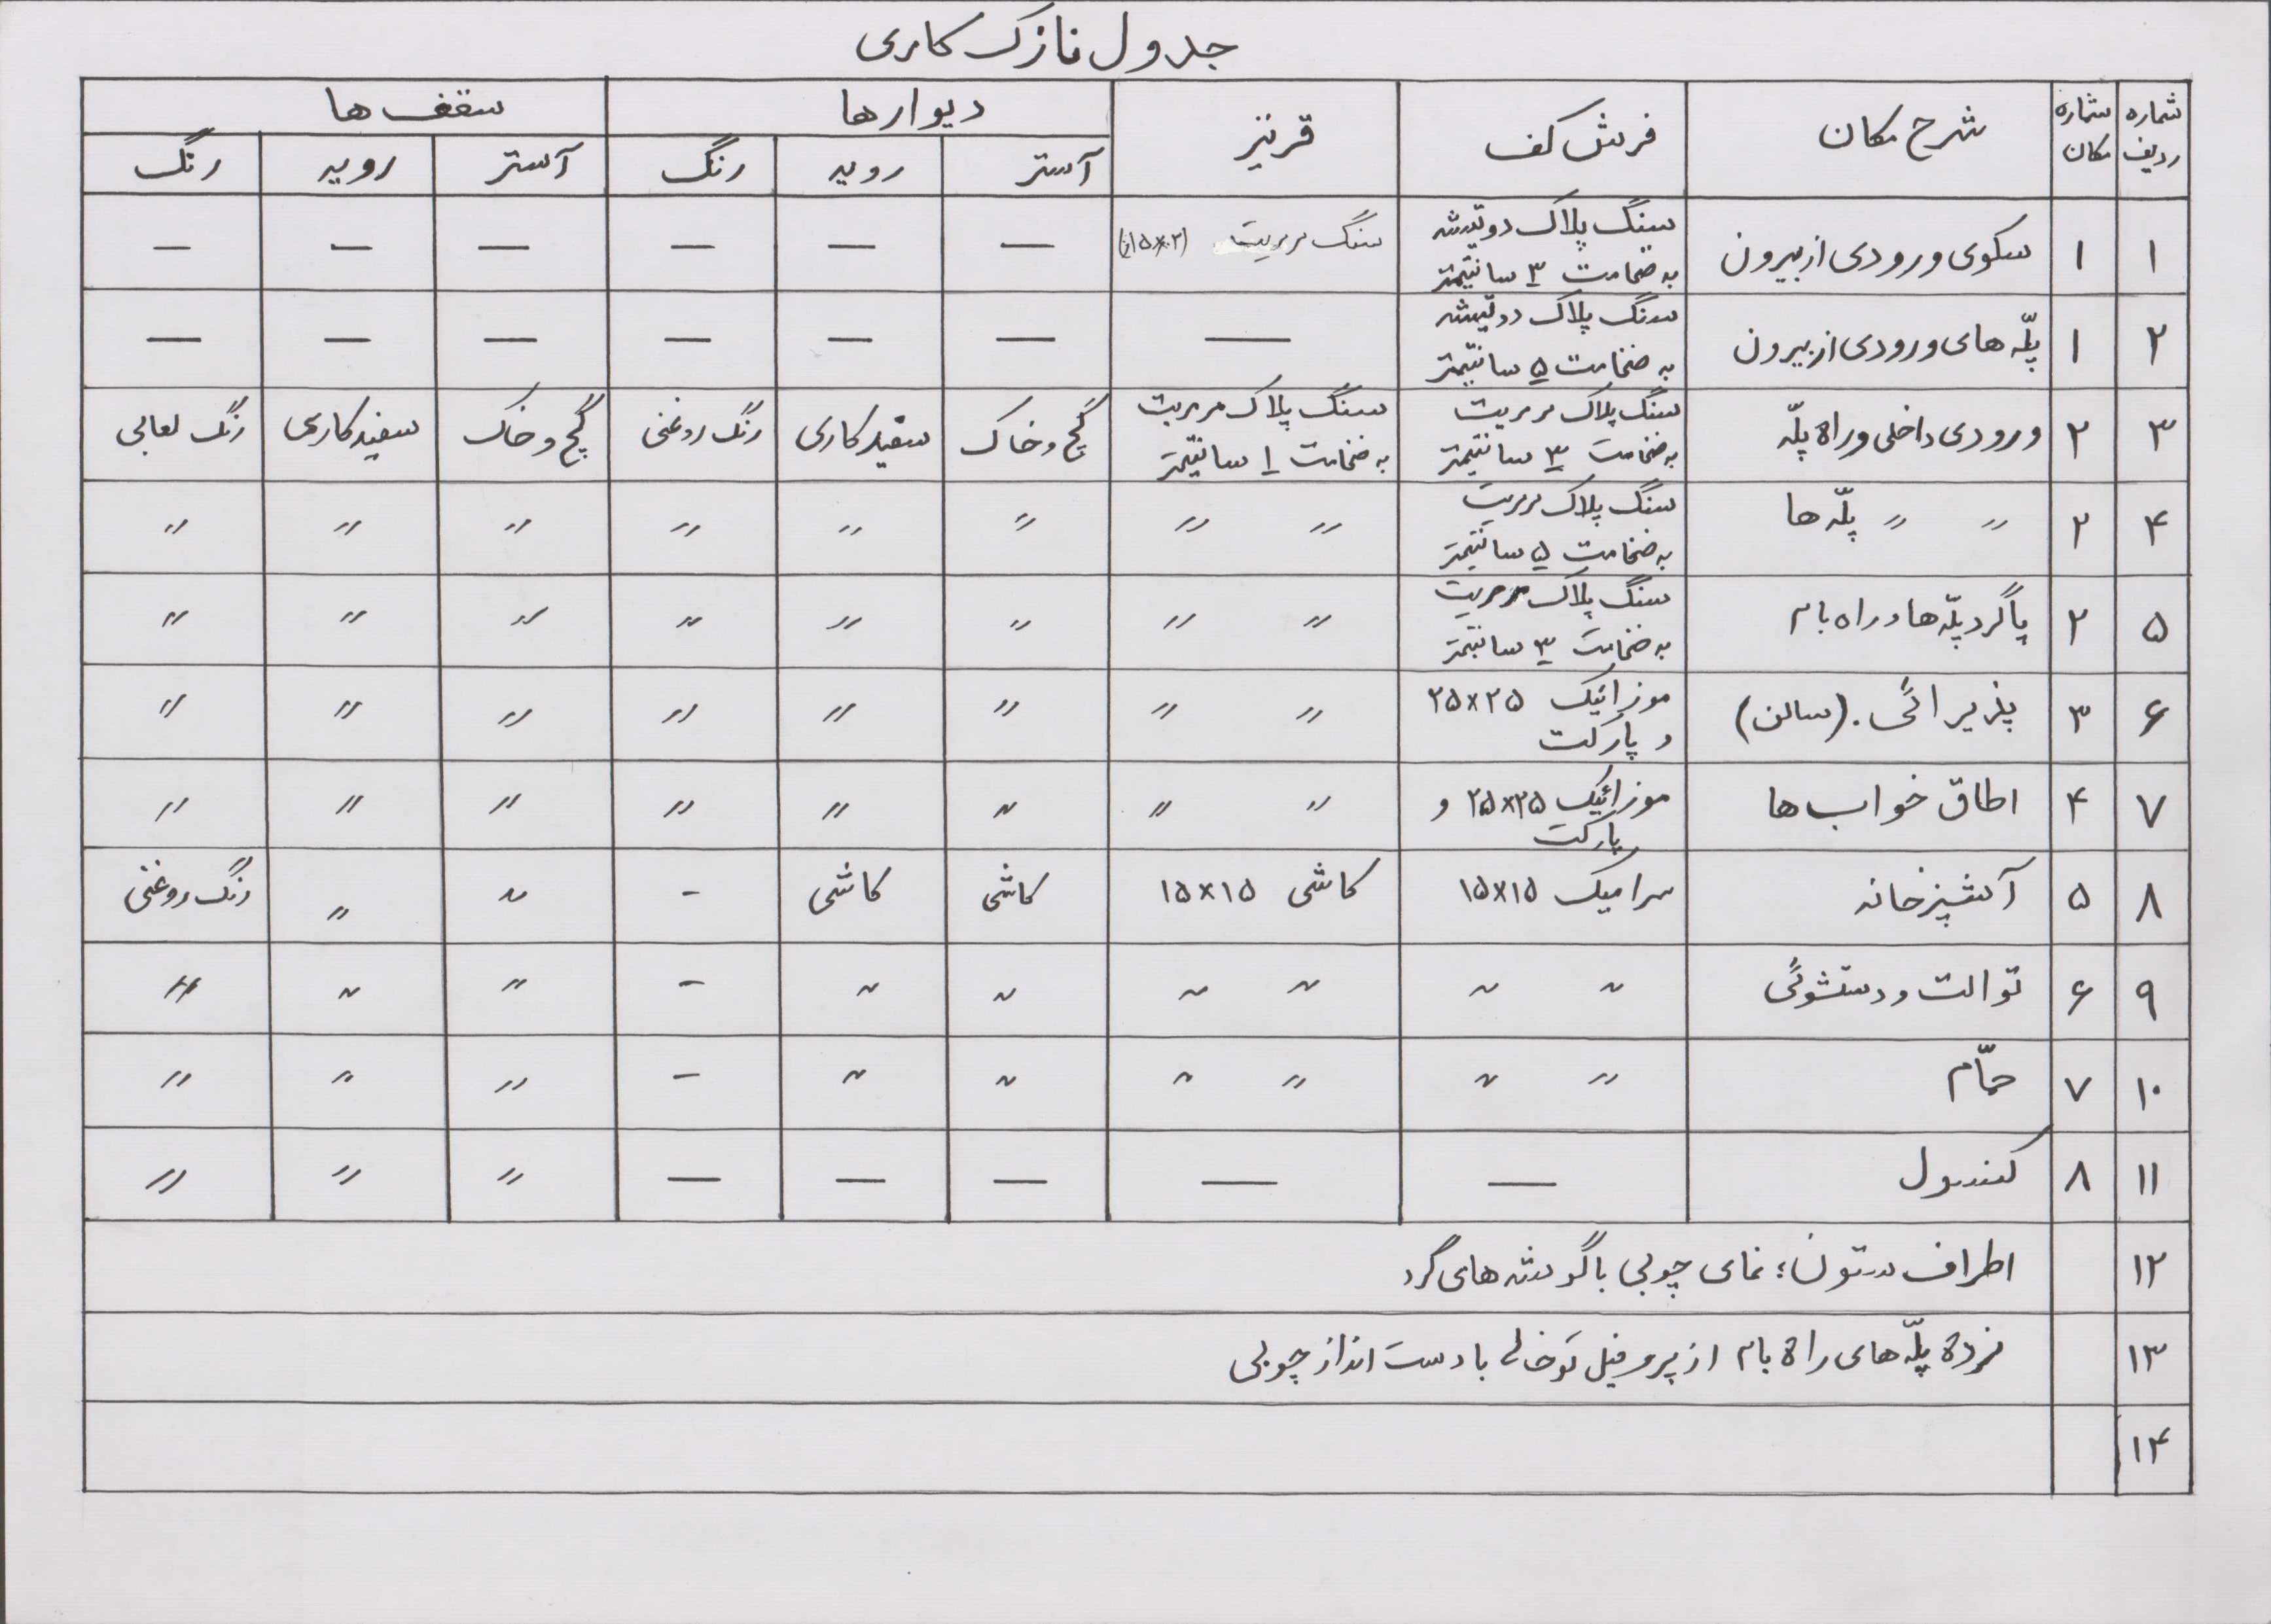 جدول نازک کاری
شماره ردیف | شماره مکان | شرح مکان | فرش کف | قرنیز | دیوارها | سقف ها
آستر | رویه | رنگ | آستر | رویه | رنگ
۱ | ۱ | سکوی ورودی از بیرون | سنگ پلاک دو تیشه | سنگ مرمریت | — | — | — | — | — | —
به ضخامت ۳ سانتیمتر
۲ | ۱ | پلّه های ورودی از بیرون | سنگ پلاک دو تیشه | — | — | — | — | — | — | —
به ضخامت ۵ سانتیمتر
۳ | ۲ | ورودی داخلی و راه پلّه | سنگ پلاک مرمریت | سنگ پلاک مرمریت | گچ و خاک | سفیدکاری | رنگ روغنی | گچ و خاک | سفیدکاری | رنگ لعابی
به ضخامت ۳ سانتیمتر | به ضخامت ۱ سانتیمتر
۴ | ۲ | " " پلّه ها | سنگ پلاک مرمریت | " " | " | " | " | " | " | "
به ضخامت ۵ سانتیمتر
۵ | ۲ | پاگرد پلّه ها و راه بام | سنگ پلاک مرمریت | " " | " | " | " | " | " | "
به ضخامت ۳ سانتیمتر
۶ | ۳ | پذیرائی. (سالن) | موزائیک ۲۵×۲۵ | " " | " | " | " | " | " | "
و پارکت
۷ | ۴ | اطاق خواب ها | موزائیک ۲۵×۲۵ و | " " | " | " | " | " | " | "
پارکت
۸ | ۵ | آشپزخانه | سرامیک ۱۵×۱۵ | کاشی ۱۵×۱۵ | کاشی | کاشی | - | " | " | رنگ روغنی
۹ | ۶ | توالت و دستشوئی | " " | " " | " | " | - | " | " | "
۱۰ | ۷ | حمّام | " " | " " | " | " | - | " | " | "
۱۱ | ۸ | کنسول | — | — | — | — | — | " | " | "
۱۲ | اطراف ستون؛ نمای چوبی با گوشه های گرد
۱۳ | نرده پلّه های راه بام از پروفیل توخالی با دست انداز چوبی
۱۴